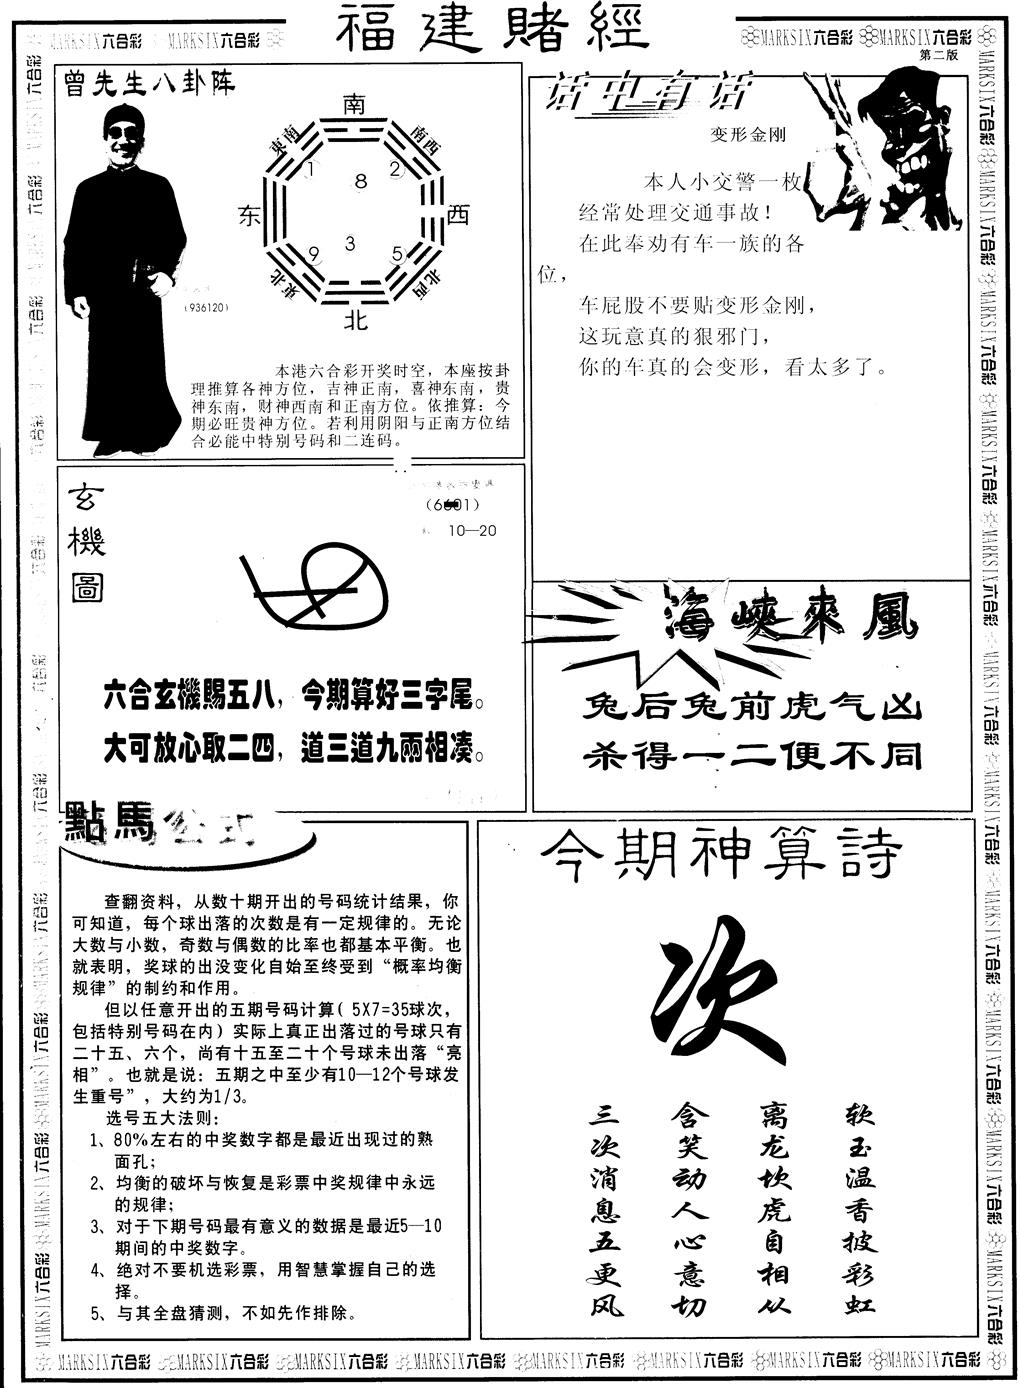 福建賭經
MARKSIX六合彩 MARKSIX六合彩
MARKSIX六合彩 MARKSIX六合彩
第二版
曾先生八卦阵
南
東南
南西
1
8
2
东
西
9
3
5
東北
北西
北
(936120)
本港六合彩开奖时空，本座按卦
理推算各神方位，吉神正南，喜神东南，贵
神东南，财神西南和正南方位。依推算：今
期必旺贵神方位。若利用阴阳与正南方位结
合必能中特别号码和二连码。
话中有话
变形金刚
本人小交警一枚
经常处理交通事故！
在此奉劝有车一族的各
位，
车屁股不要贴变形金刚，
这玩意真的狠邪门，
你的车真的会变形，看太多了。
玄機圖
10—20
六合玄機賜五八，今期算好三字尾。
大可放心取二四，道三道九兩相凑。
海峽來風
兔后兔前虎气凶
杀得一二便不同
點馬公式
查翻资料，从数十期开出的号码统计结果，你
可知道，每个球出落的次数是有一定规律的。无论
大数与小数，奇数与偶数的比率也都基本平衡。也
就表明，奖球的出没变化自始至终受到“概率均衡
规律”的制约和作用。
但以任意开出的五期号码计算( 5X7=35球次，
包括特别号码在内）实际上真正出落过的号球只有
二十五、六个，尚有十五至二十个号球未出落“亮
相”。也就是说：五期之中至少有10—12个号球发
生重号”，大约为1/3。
选号五大法则：
1、80%左右的中奖数字都是最近出现过的熟
面孔；
2、均衡的破坏与恢复是彩票中奖规律中永远
的规律；
3、对于下期号码最有意义的数据是最近5—10
期间的中奖数字。
4、绝对不要机选彩票，用智慧掌握自己的选
择。
5、与其全盘猜测，不如先作排除。
今期神算詩
次
软玉温香披彩虹
离龙坎虎自相从
含笑动人心意切
三次消息五更风
MARKSIX六合彩 MARKSIX六合彩 MARKSIX六合彩 MARKSIX六合彩 MARKSIX六合彩 MARKSIX六合彩 MARKSIX六合彩 MARKSIX六合彩